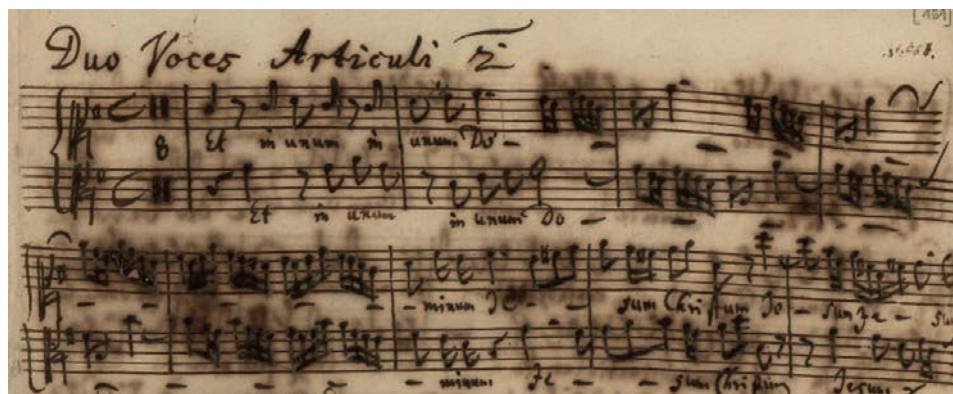 [151]
Duo Voces Articuli 2
8 Et in unum in unum Do -
Et in unum in unum Do - -
- - - - - minum Je - - sum Christum Je - sum Je -
- - - - - minum Je - - sum Christum Jesum